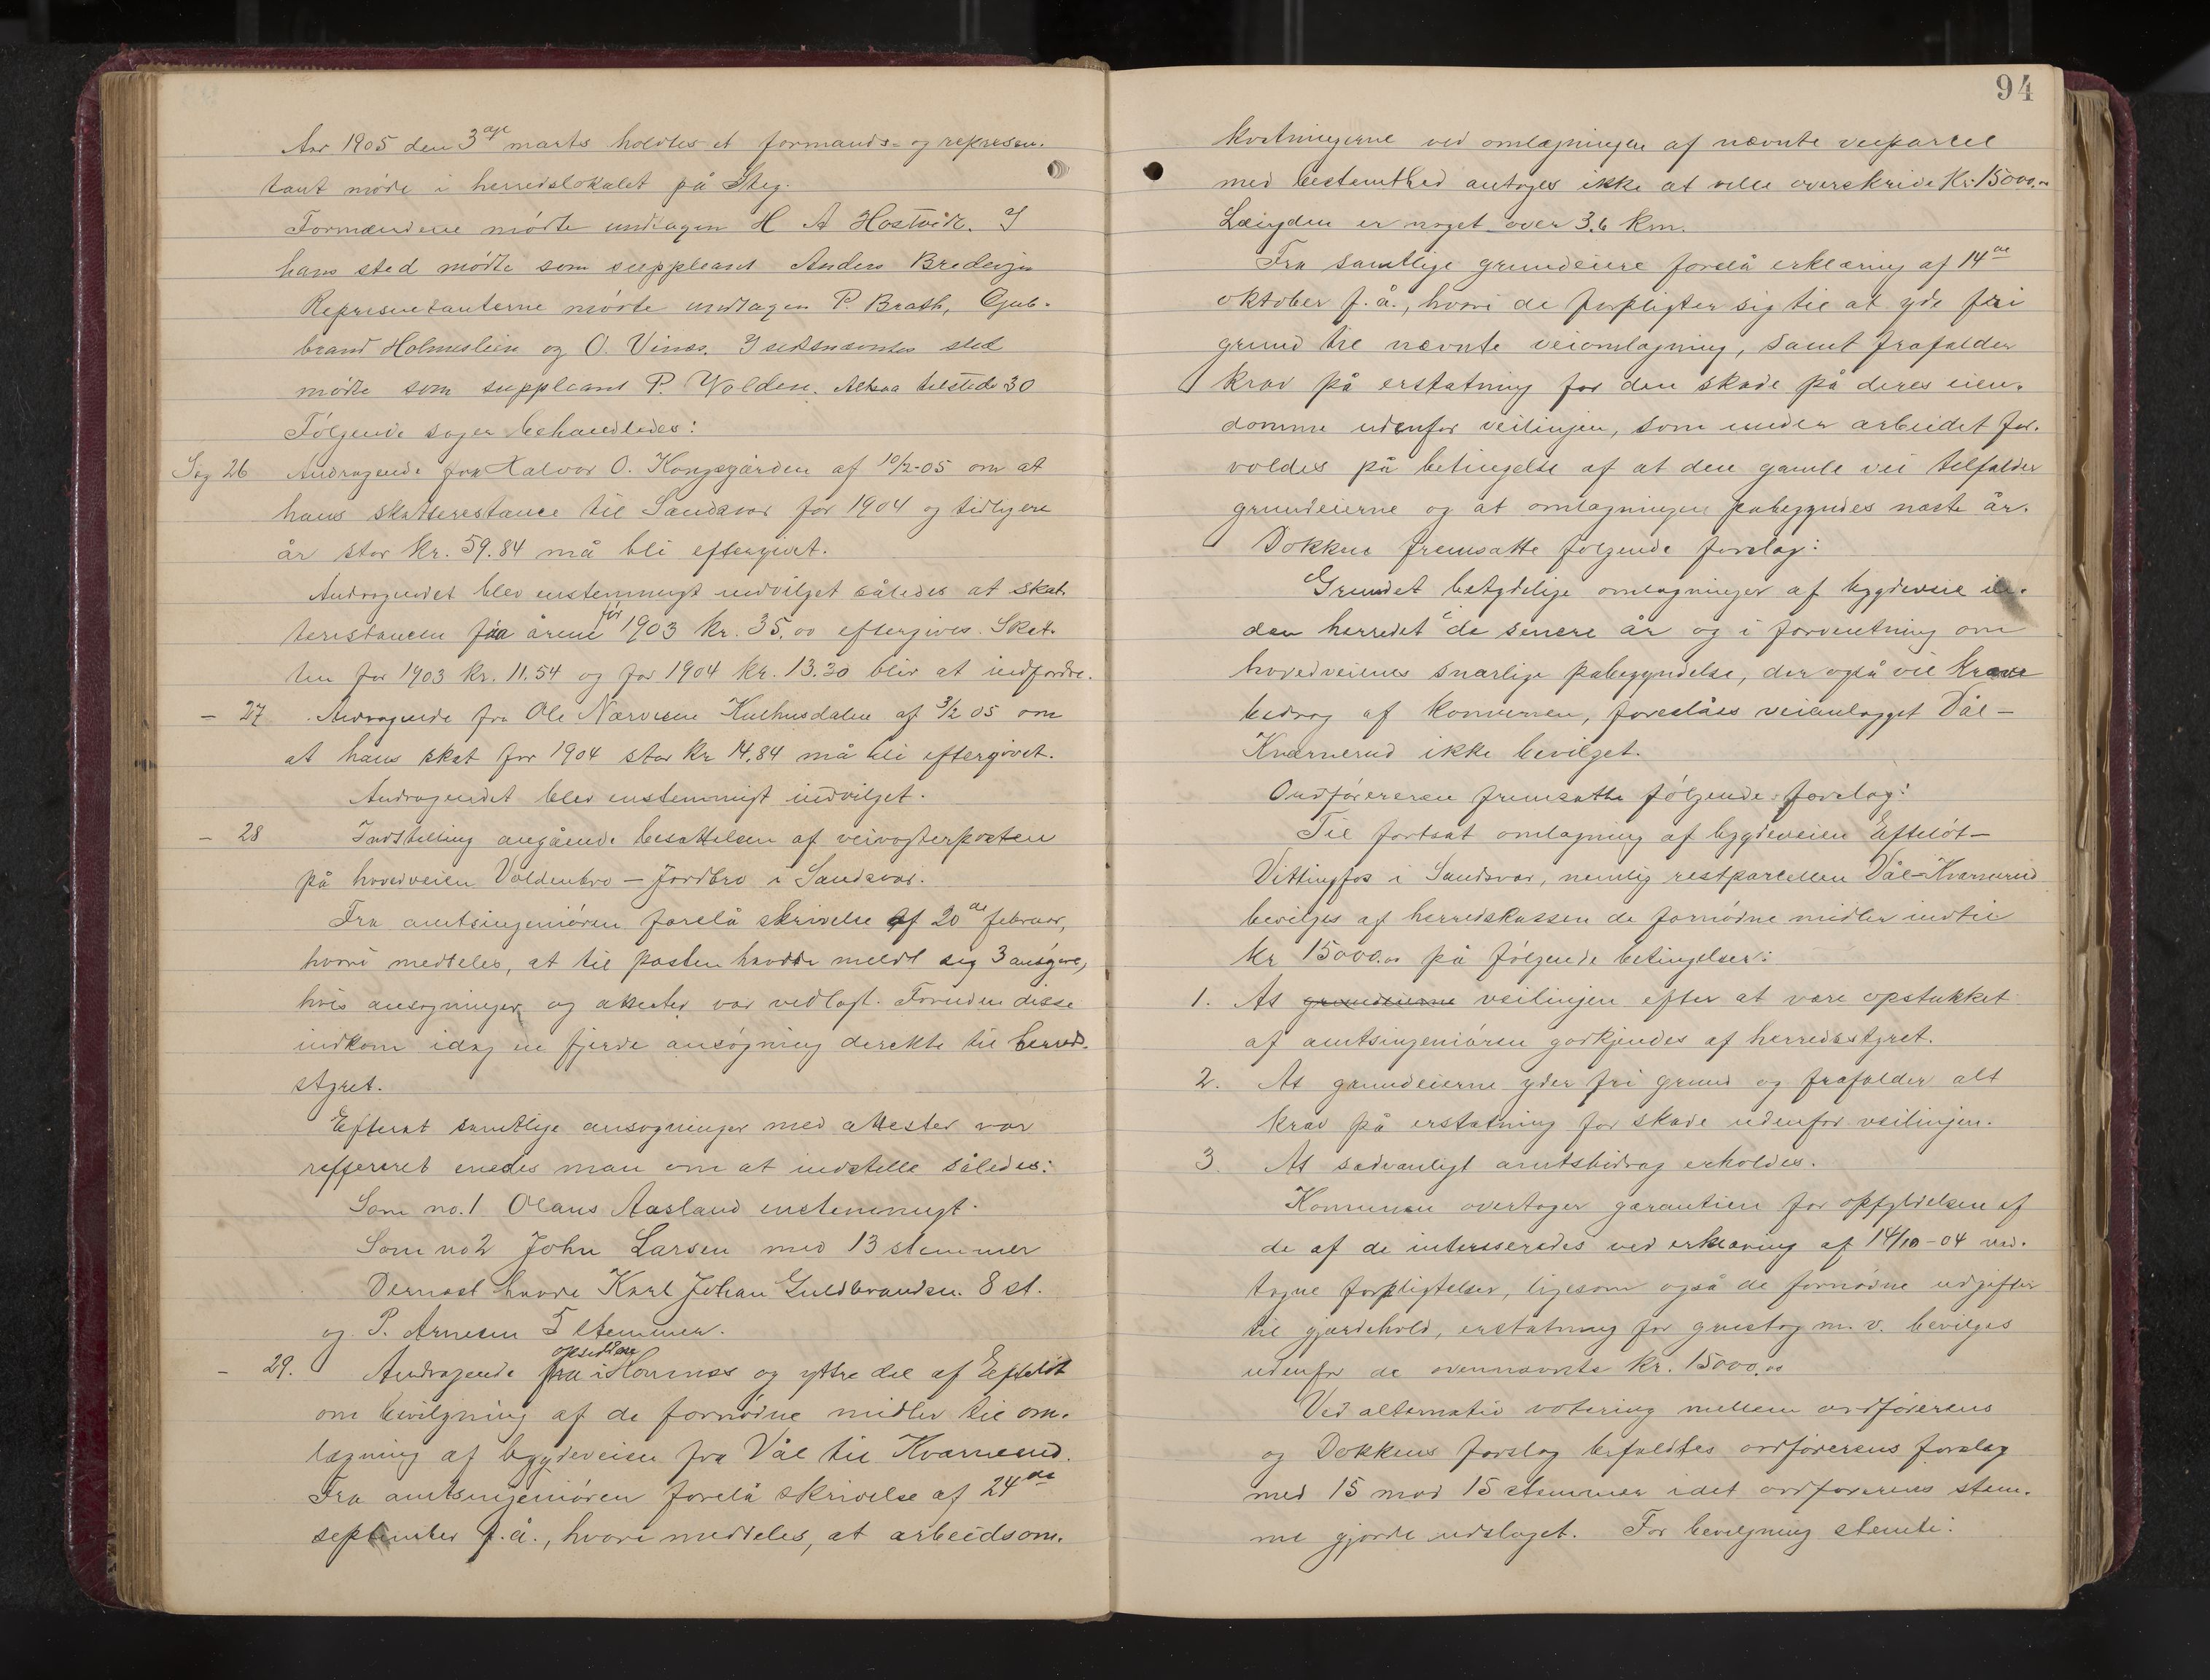 Aar 1905 den 3die marts holdtes et formands- og represen-
tant møde i herredslokalet på Steg.
Formændene mødte undtagen H A Hostvedt. I
hans sted mødte som suppleant Anders
Representanterne mødte undtagen P. Brath, Gul-
brand Holmslien og O. Vinæs. I sidstnævntes sted
mødte som suppleant P. Volden. Altsaa tilstede 30
Følgende sager behandledes:
Sag 26 Andragende fra Halvor O. Kongsgården af 10/2-05 om at
hans skatterestance til Sandsvær for 1904 og tidligere
år stor kr. 59.84 må bli eftergivet.
Andragendet blev enstemmigt indvilget således at skat-
terestancen fra årene før 1903 kr. 35,00 eftergives. Skat-
ten for 1903 kr. 11.54 og for 1904 kr. 13.30 blir at indfordre.
- 27 Andragende fra Ole Narvesen Kulhusdalen af 3/2 05 om
at hans skat for 1904 stor kr 14,84 må bli eftergivet.
Andragendet blev enstemmigt indvilget.
- 28 Indstilling angående besættelsen af veivogterposten
på hovedveien Voldenbro - Jordbro i Sandsvær.
Fra amtsingeniøren forelå skrivelse af 20de februar,
hvori meddeles, at til posten havde meldt sig 3 ansøgere,
hvis ansøgninger og attester var vedlagt. Foruden disse
indkom idag en fjerde ansøgning derekte til herreds-
styret.
Efterat samtlige ansøgninger med attester var
reffereret enedes man om at indstille således:
Som no. 1 Olaus Aasland enstemmigt.
Som no 2 John Larsen med 13 stemmer
Dernæst havde Karl Johan Guldbrandsen 8 st.
og P. Arnesen 5 stemmer.
- 29. Andragende fra opsiddere i Hornæs og yttre del af Efteløt
om bevilgning af de fornødne midler til om-
lægning af bygdeveien fra Vål til Kværnerud.
Fra amtsingeniøren forelå skrivelse af 24de
september f.å., hvori meddeles, at arbeidsom-
94
kostningerne ved omlægningen af nævnte veiparcel
med bestemthed antages ikke at ville overskride Kr. 15000,00
Længden er noget over 3,6 km.
Fra samtlige grundeiere forelå erklæring af 14de
oktober f.å., hvori de forpligter sig til at yde fri
grund til nævnte veiomlægning, samt frafalder
krav på erstatning for den skade på deres eien-
domme udenfor veilinjen, som under arbeidet for-
voldes på betingelse af at den gamle vei tilfalder
grundeierne og at omlægningen påbegyndes næste år.
Dokken fremsatte følgende forslag:
Grundet betydelige omlægninger af bygdeveie in-
den herredet i de senere år og i forventning om
hovedveienes snarlige påbegyndelse, der også vil kræve
bidrag af kommunen, foreslåes veianlægget Vål -
Kværnerud ikke bevilget.
Ordføreren fremsatte følgende forslag:
Til fortsat omlægning af bygdeveien Efteløt -
Vittingfos i Sandsvær, nemlig restparcellen Vål-Kværnerud
bevilges af herredskassen de fornødne midler indtil
kr 15000.00 på følgende betingelser:
1. At grundeierne veilinjen efter at være opstukket
af amtsingeniøren godkjendes af herredsstyret.
2. At grundeierne yder fri grund og frafalder alt
krav på erstatning for skade udenfor veilinjen.
3. At sædvanligt amtsbidrag erholdes.
Kommunen overtager garantien for opfyldelsen af
de af de interesserede ved erklæring af 14/10-04 ved-
tagne forpligtelser, ligesom også de fornødne udgifter
til gjærdehold, erstatning for grustag m. v. bevilges
udenfor de ovennævnte kr. 15000,00
Ved alternativ votering mellem ordførerens
og Dokkens forslag bifaldtes ordførerens forslag
med 15 mod 15 stemmer idet ordførerens stem-
me gjorde udslaget. For bevilgning stemte: